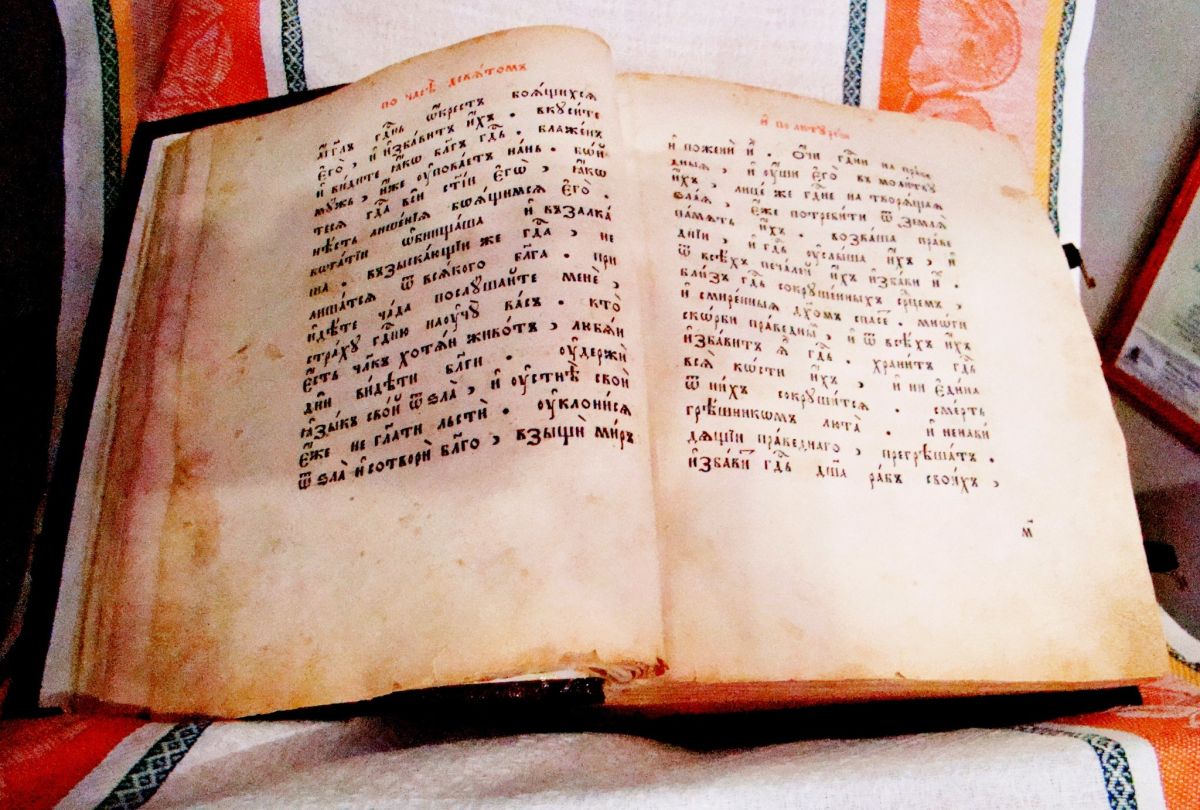 по часѣ̀ девѧ́томъ
а҆́гг҃лъ гдⷭ҇нь ѡ҆́крестъ боѧ́щихсѧ
є҆гѡ̀ , и҆ и҆зба́витъ и҆́хъ . вкꙋси́те
и҆ ви́дите ꙗ҆́кѡ бл҃гъ гдⷭ҇ь . блаже́нъ
мꙋ́жъ , и҆́же ᲂу҆пова́етъ на́нь . бѡ́й
тесѧ гдⷭ҇а всѝ ст҃і́и є҆гѡ̀ , ꙗ҆́кѡ
нѣ́сть лише́нїѧ боѧ́щимсѧ є҆гѡ̀ .
бога́тїи ѡ҆бнища́ша и҆ взалка́
ша . взыска́ющїи же гдⷭ҇а , не
лиша́тсѧ ѿ всѧ́кого бл҃га . при
и҆дѣ́те ча́да послꙋ́шайте менѐ ,
стра́хꙋ гдⷭ҇ню наᲂучꙋ̀ ва́съ . кто̀
є҆́сть чл҃къ хотѧ́й живо́тъ , любѧ́й
дни̑ ви́дѣти бл҃ги . ᲂу҆держѝ
ѧ҆зы́къ сво́й ѿ ѕла̀ , и҆ ᲂу҆стнѣ̀ своѝ
є҆́же не гл҃ати льстѝ . ᲂу҆клони́сѧ
ѿ ѕла̀ и҆ сотворѝ бл҃го , взыщѝ ми́ръ
и҆ по литꙋргі́и
и҆ поженѝ и҆̀ . ѻ҆́чи гдⷭ҇ни на пра́ве
дныѧ , и҆ ᲂу҆́ши є҆гѡ̀ въ моли́твꙋ
и҆́хъ , лице́ же гдⷭ҇не на творѧ́щаѧ
ѕла́ѧ , є҆́же потреби́ти ѿ землѧ̀
па́мѧть и҆́хъ . возва́ша пра́ве
днїи , и҆ гдⷭ҇ь ᲂу҆слы́ша и҆́хъ , и҆
ѿ всѣ́хъ печа́лей и҆́хъ и҆зба́ви и҆̀ .
бли́зъ гдⷭ҇ь сокрꙋше́нныхъ срⷣцемъ ,
и҆ смире́нныѧ дх҃омъ спасе́тъ . мнѡ́ги
скѡ́рби пра́веднымъ , и҆ ѿ всѣ́хъ и҆́хъ
и҆зба́витъ ѧ҆̀ гдⷭ҇ь . храни́тъ гдⷭ҇ь
всѧ̀ кѡ́сти и҆́хъ , и҆ ни є҆ди́на
ѿ ни́хъ сокрꙋши́тсѧ . сме́рть
грѣ́шникомъ люта̀ . и҆ ненави́
дѧщїи пра́веднаго , прегрѣша́тъ .
и҆зба́витъ гдⷭ҇ь дш҃а ра́бъ свои́хъ ,
м҃